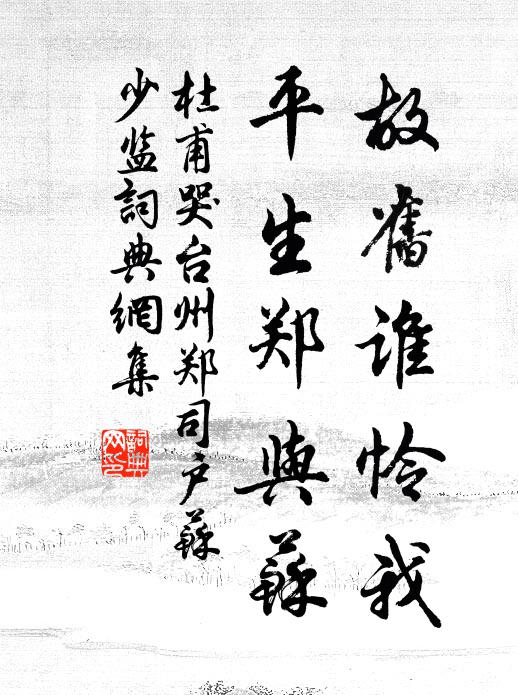 故舊谁怜我
平生郑與蘇
杜甫哭台州郑司户蘇
少监詞典網集
詞典
网印